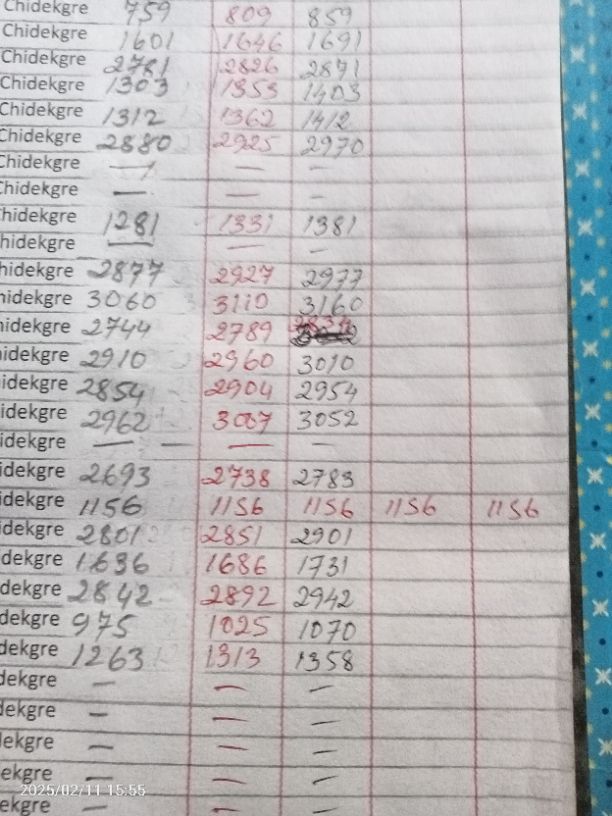 Chidekgre 759 809 859
Chidekgre 1601 1646 1691
Chidekgre 2781 2826 2871
Chidekgre 1303 1353 1403
Chidekgre 1312 1362 1412
Chidekgre 2880 2925 2970
Chidekgre — — —
Chidekgre — — —
Chidekgre 1281 1331 1381
hidekgre — — —
hidekgre 2877 2927 2977
hidekgre 3060 3110 3160
hidekgre 2744 2789
idekgre 2910 2960 3010
idekgre 2854 2904 2954
idekgre 2962 3007 3052
idekgre — — —
idekgre 2693 2738 2783
idekgre 1156 1156 1156 1156 1156
dekgre 2801 2851 2901
dekgre 1636 1686 1731
dekgre 2842 2892 2942
dekgre 975 1025 1070
dekgre 1263 1313 1358
dekgre — — —
dekgre — — —
ekgre — — —
ekgre — — —
ekgre — — —
2025/02/11 15:55